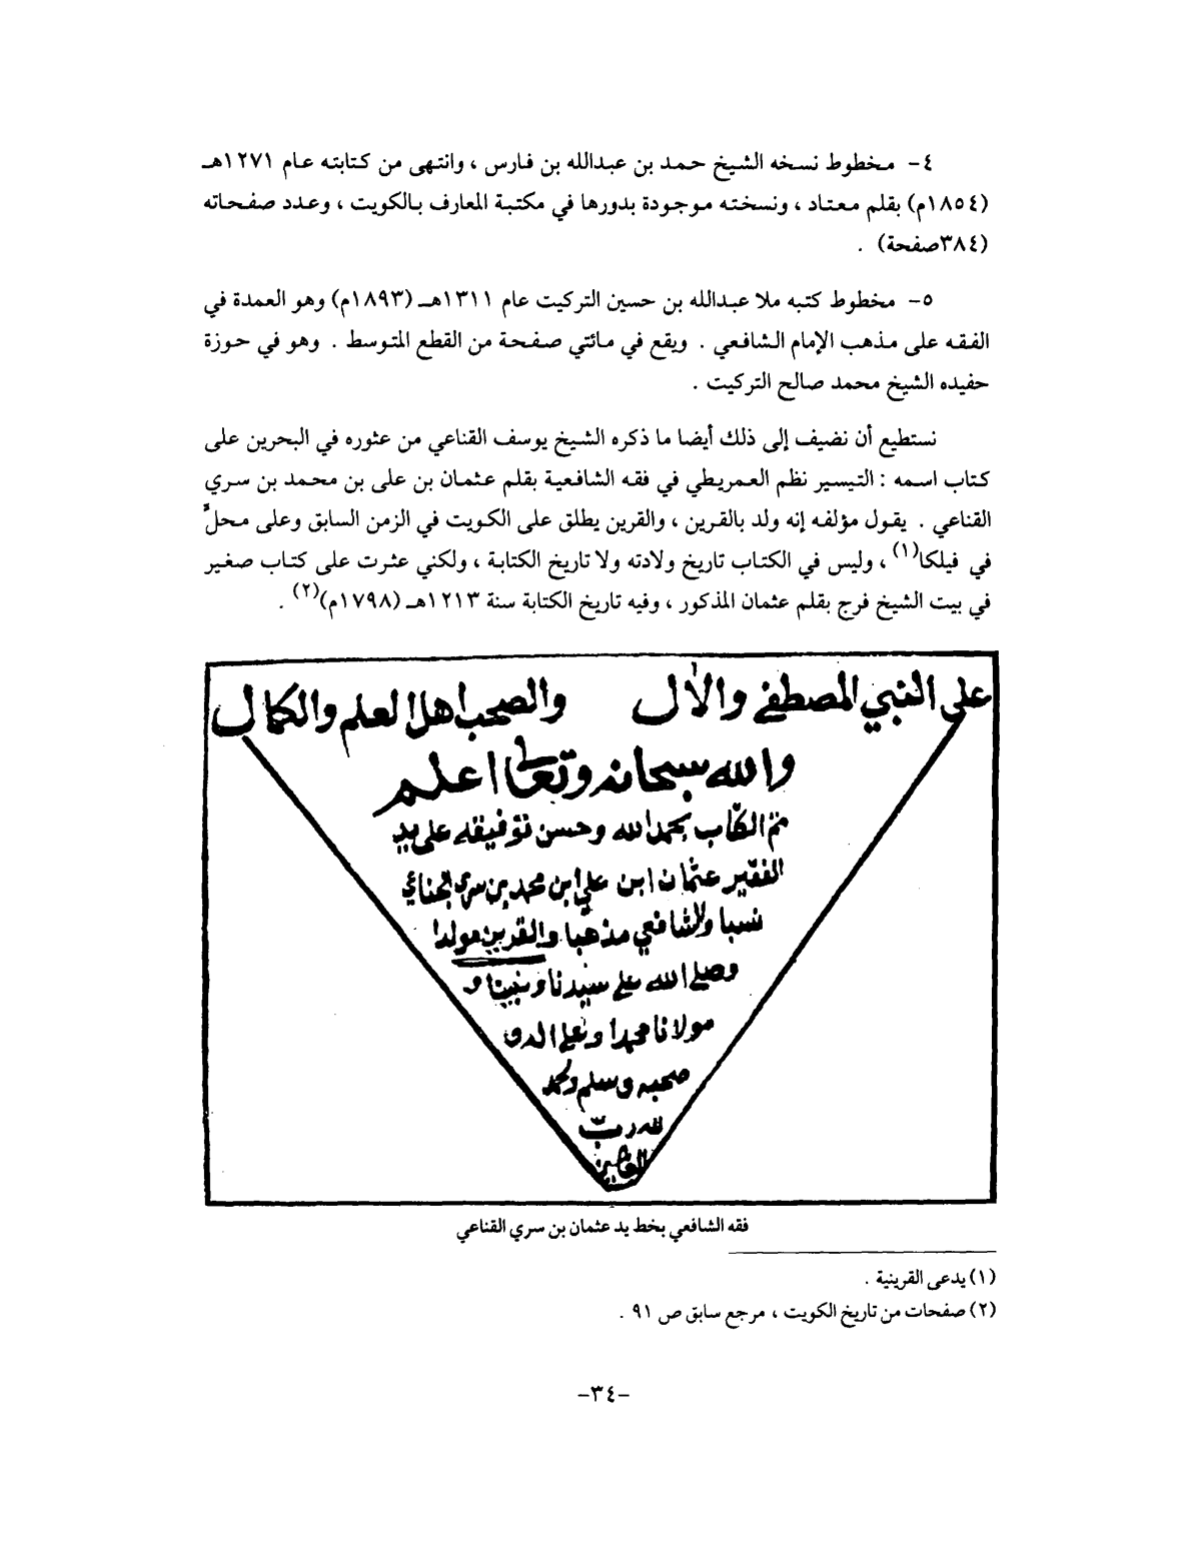 ٤- مخطوط نسخه الشيخ حمد بن عبدالله بن فارس ، وانتهى من كتابته عام ١٢٧١هـ
(١٨٥٤م) بقلم معتاد ، ونسخته موجودة بدورها في مكتبة المعارف بالكويت ، وعدد صفحاته
(٣٨٤صفحة) .
٥- مخطوط كتبه ملا عبدالله بن حسين التركيت عام ١٣١١هـ (١٨٩٣م) وهو العمدة في
الفقه على مذهب الإمام الشافعي . ويقع في مائتي صفحة من القطع المتوسط . وهو في حوزة
حفيده الشيخ محمد صالح التركيت .
نستطيع أن نضيف إلى ذلك أيضا ما ذكره الشيخ يوسف القناعي من عثوره في البحرين على
كتاب اسمه : التيسير نظم العمريطي في فقه الشافعية بقلم عثمان بن على بن محمد بن سري
القناعي . يقول مؤلفه إنه ولد بالقرين ، والقرين يطلق على الكويت في الزمن السابق وعلى محلٍّ
في فيلكا(١) ، وليس في الكتاب تاريخ ولادته ولا تاريخ الكتابة ، ولكني عثرت على كتاب صغير
في بيت الشيخ فرج بقلم عثمان المذكور ، وفيه تاريخ الكتابة سنة ١٢١٣هـ (١٧٩٨م)(٢) .
على النبي المصطفى والآل والصحب اهل العلم والكمال
والله سبحانه وتعالى اعلم
تم الكتاب بحمد الله وحسن توفيقه على يد
الفقير عثمان ابن علي ابن محمد بن سري
نسبا والشافعي مذهبا والقرين مولدا
وصلى الله على سيدنا ونبينا و
مولانا محمد وعلى اله و
صحبه وسلم والحمد
لله رب
العالمين
فقه الشافعي بخط يد عثمان بن سري القناعي
(١) يدعى القرينية .
(٢) صفحات من تاريخ الكويت ، مرجع سابق ص ٩١ .
-٣٤-